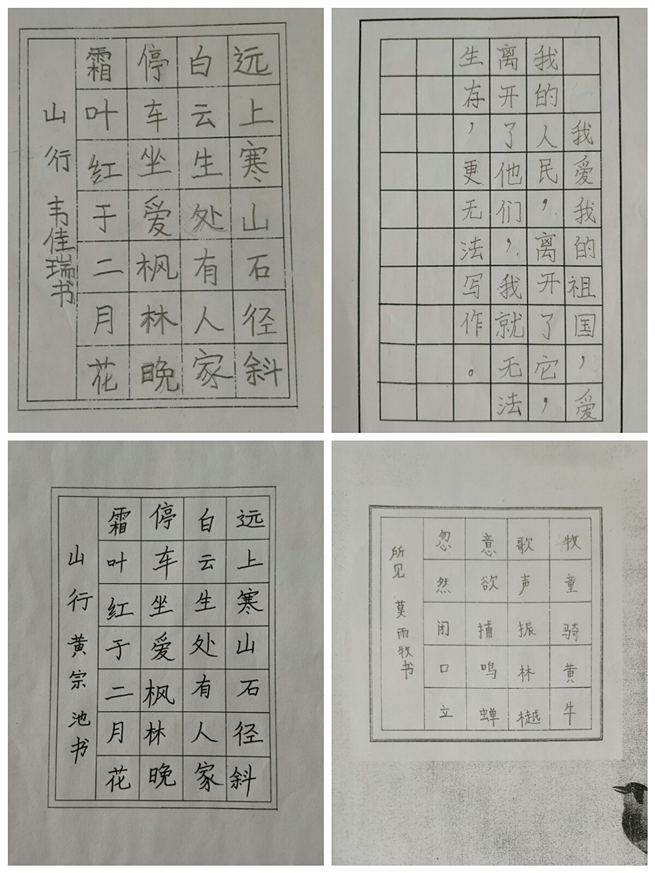 远上寒山石径斜
白云生处有人家
停车坐爱枫林晚
霜叶红于二月花
山行 韦佳瑞书
我爱我的祖国，爱
我的人民，离开了它，
离开了他们，我就无法
生存，更无法写作。
远上寒山石径斜
白云生处有人家
停车坐爱枫林晚
霜叶红于二月花
山行 黄宗池书
牧童骑黄牛
歌声振林樾
意欲捕鸣蝉
忽然闭口立
所见 莫雨牧书